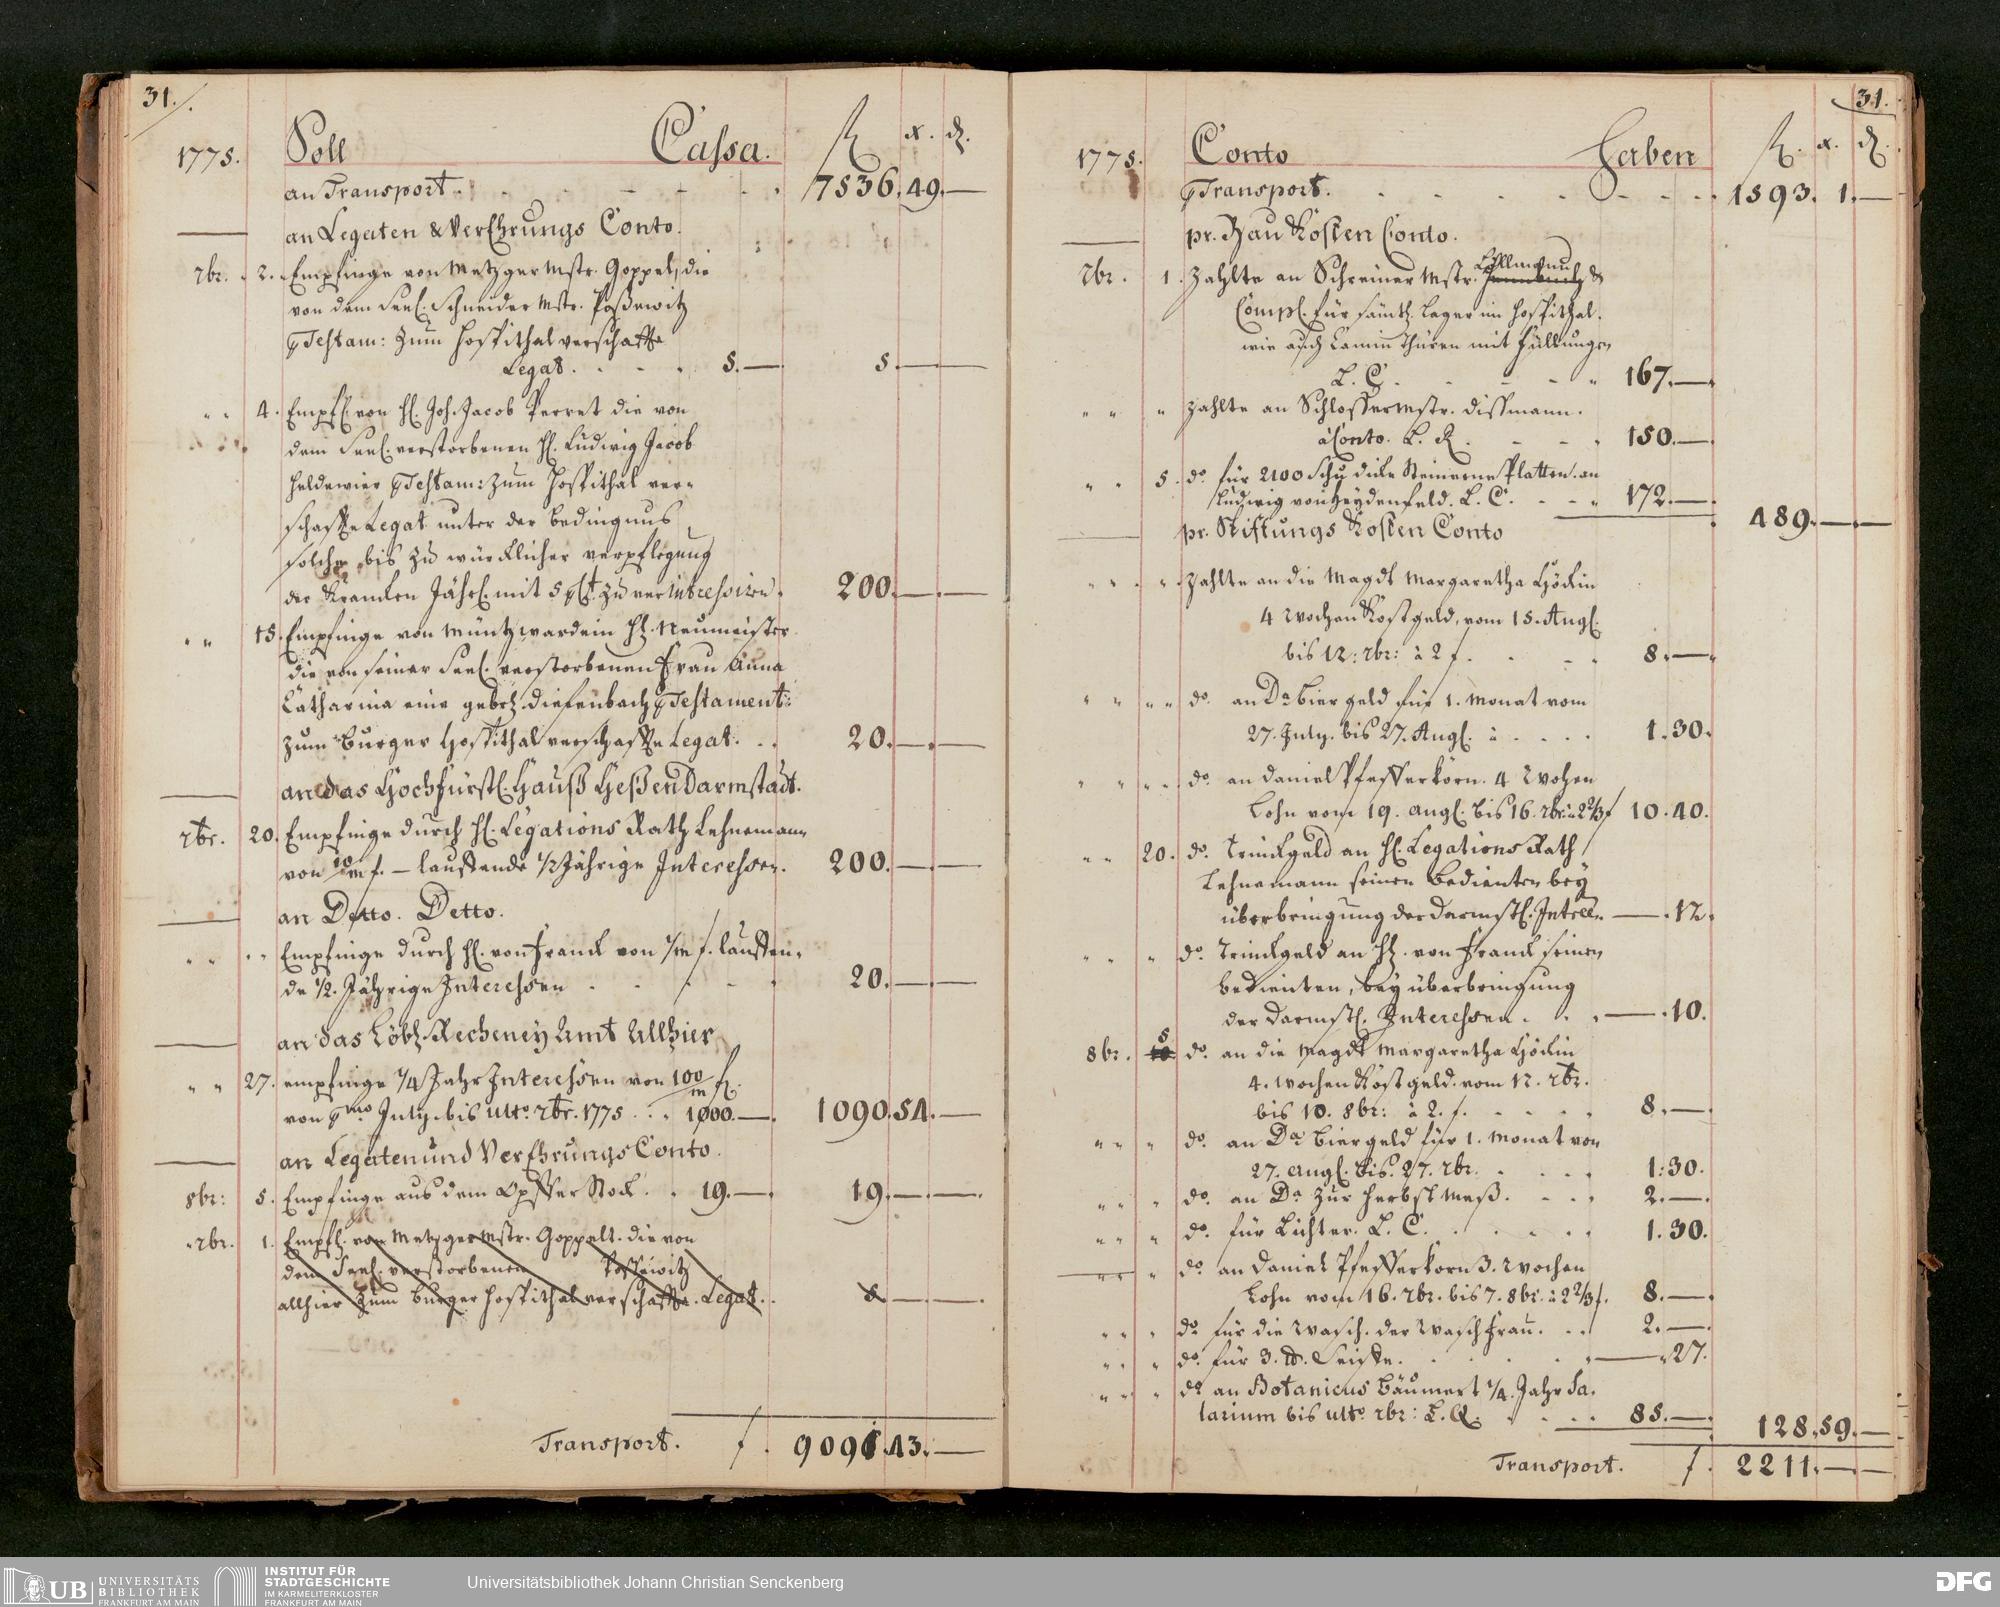 31.
1775. Soll Cassa. R x. d.
an Transport. 7536. 49. —
an Legaten & Verehrungs Conto.
7br. 2. Empfinge von Metzger Mstr. Goppel, die
von dem Seel. Schneider Mstr. Poßewitz
Testam: zum Hospithal verschaffte
Legat. 5. — 5. —
" " 4. Empf. von H. Joh. Jacob Perret die von
dem Seel. verstorbenen H. Ludwig Jacob
Heldewier Testam: zum Hospithal ver-
schaffte Legat unter der bedingnus
solche bis zu würcklicher verpflegung
der Krancken Jährl. mit 5 pCt. zu verinteressiren. 200. — —
" " 15. Empfinge von Müntzwardein H. Neumeister
die von seiner Seel. verstorbenen Frau Anna
Catharina eine gebohr. Diefenbach Testament:
zum Burger Hospithal verschaffte Legat. 20. — —
an das Hochfürstl. Hauß Heßen Darmstadt.
7br. 20. Empfinge durch H. Legations Rath Lehnemann
von 10/m f. — lauffende 1/2 Jährige Interessen. 200. — —
an Detto. Detto.
" " " " Empfinge durch H. von Franck von 1/m f. lauffen-
de 1/2. Jährige Interessen 20. — —
an das Löbl. Recheney Amt Allhier
" " 27. empfinge 1/4 Jahr Interessen von 100/m f.
von pmo July bis ulto. 7br. 1775 1000. — 1090. 54. —
an Legaten und Verehrungs Conto.
8br: 5. Empfinge aus dem Opffer Stock. 19. — 19. — —
7br. 1. Empfl. von Metzger Mstr. Goppelt. die von
dem Seel. verstorbenen Possewitz
allhier zum Burger Hospithal verschaffte Legat. 5. — —
Transport. f. 9091. 43. —
31.
1775. Conto Haben R. x. d.
Transport. 1593. 1. —
pr. Bau Kosten Conto.
7br. 1. Zahlte an Schreiner Mstr. &
Comp. für sämtl. Lager im Hospithal.
wie auch Camin Thüren mit Füllungen
L. C. 167. —
" " " Zahlte an Schlosser Mstr. Dissmann.
à Conto. L. R. 150. —
" " 5. do. für 2100 Schu dicke Steinerne Platten. an
Ludwig von Heydenfeld. L. C. 172. —
489. — —
pr. Stiftungs Kosten Conto
" " " Zahlte an die Magdt Margaretha Höckin
4 Wochen Kostgeld, vom 15. Augl.
bis 12: 7br: à 2 f. 8. —
" " " " do. an Da Biergeld für 1. Monat vom
27. July. bis 27. Augl. à 1. 30.
" " " " do. an Daniel Pfefferkorn. 4 Wochen
Lohn vom 19. augl. bis 16. 7br. à 2 2/3 f 10. 40.
" " 20. do. Trinckgeld an H. Legations Rath
Lehnemann seinen Bedienten bey
überbringung der Darmst. Intess. — . 12.
" " " do. Trinckgeld an H. von Franck seinen
Bedienten, bey überbringung
der Darmst. Interessen. — . 10.
8br. 5 do. an die Magdt Margaretha Höckin
4. Wochen Kostgeld. vom 12. 7br.
bis 10. 8br: à 2. f. 8. —
" " " do. an Da Biergeld für 1. Monat von
27. augl. bis. 27. 7br. 1: 30.
" " " do. an Da zur Herbst Meß. 2. —
" " " do. für Lichter. L. C. 1. 30.
" " " do. an Daniel Pfefferkorn 3. Wochen
Lohn vom 16. 7br. bis 7. 8br. à 2 2/3 f. 8. —
" " " do. für die Wasch. der Wasch frau. 2. —
" " " do. für 3. lb. Seiffe. — " 27.
" " " do. an Botanicus Bäumert 1/4. Jahr Sa-
larium bis ulto. 7br: L. Q. 85. — 128. 59. —
Transport. f. 2211. — —
UB UNIVERSITÄTS BIBLIOTHEK FRANKFURT AM MAIN
INSTITUT FÜR STADTGESCHICHTE IM KARMELITERKLOSTER FRANKFURT AM MAIN
Universitätsbibliothek Johann Christian Senckenberg
DFG